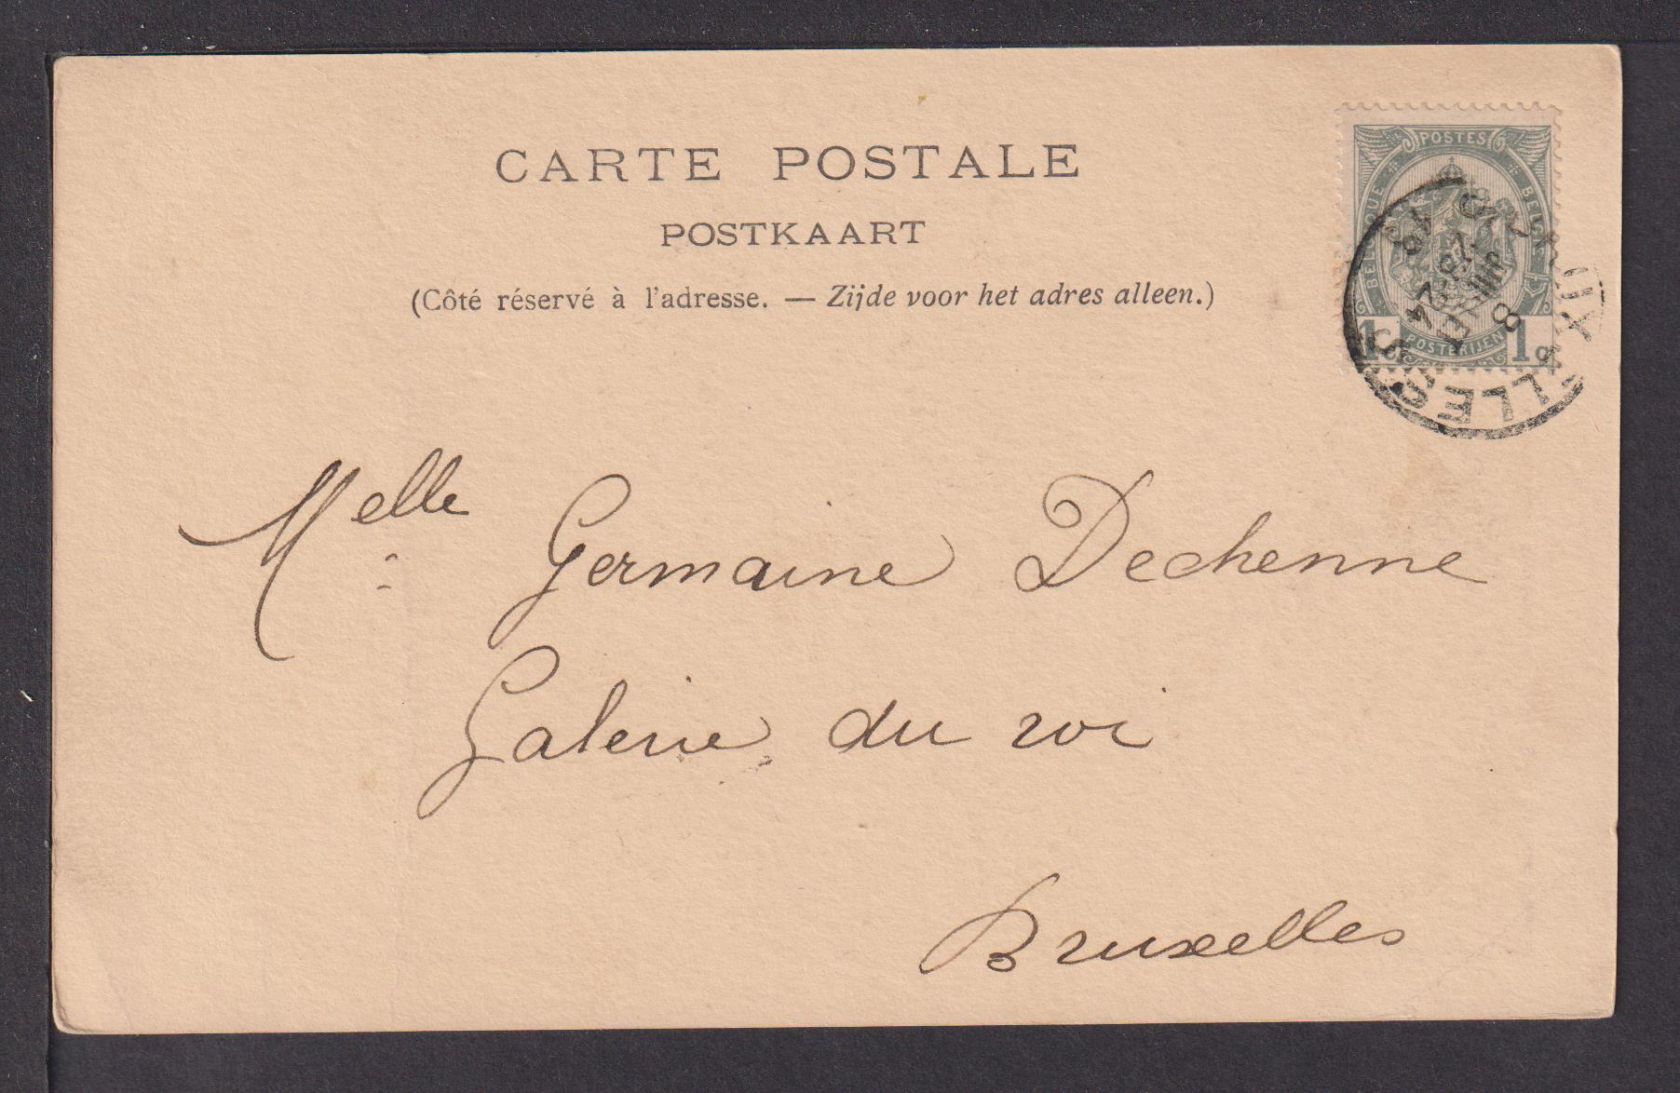 CARTE POSTALE
POSTKAART
(Côté réservé à l'adresse. — Zijde voor het adres alleen.)
POSTES
BELGIQUE
BELGIË
POSTERIJEN
1c 1c
Melle Germaine Dechenne
Galerie du roi
Bruxelles